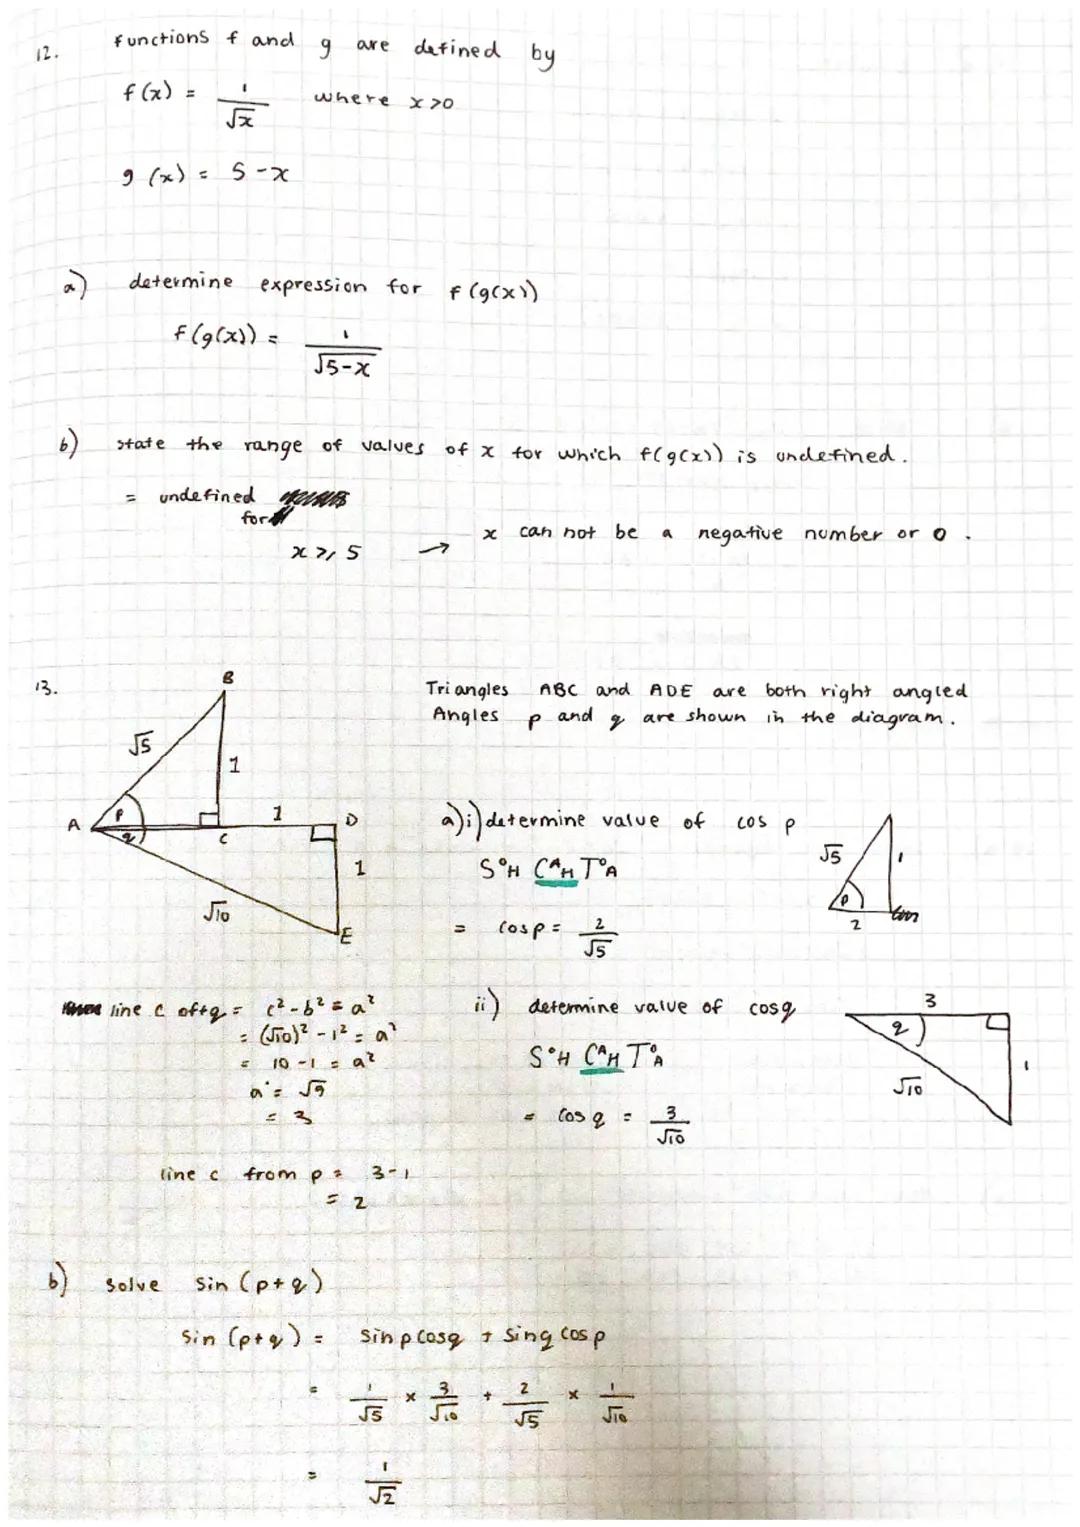 12. functions f and g are defined by
f(x) = 1/√x where x>0
g(x) = 5-x
a) determine expression for f(g(x))
f(g(x)) = 1/√5-x
b) state the range of values of x for which f(g(x)) is undefined.
= undefined
for
x ⩾ 5 → x can not be a negative number or 0.
13.
B
√5
1
A
p
q
C
1
D
1
√10
E
Triangles ABC and ADE are both right angled
Angles p and q are shown in the diagram.
a) i) determine value of cos p
SOH CAH TOA
= cos p = 2/√5
√5
1
p
2
line c of q = c² - b² = a²
= (√10)² - 1² = a²
= 10 - 1 = a²
a = √9
= 3
line c from p = 3-1
= 2
ii) determine value of cosq
SOH CAH TOA
= cos q = 3/√10
3
q
√10
1
b) solve sin (p+q)
sin (p+q) = sinpcosq + sinqcosp
= 1/√5 × 3/√10 + 2/√5 × 1/√10
= 1/√2